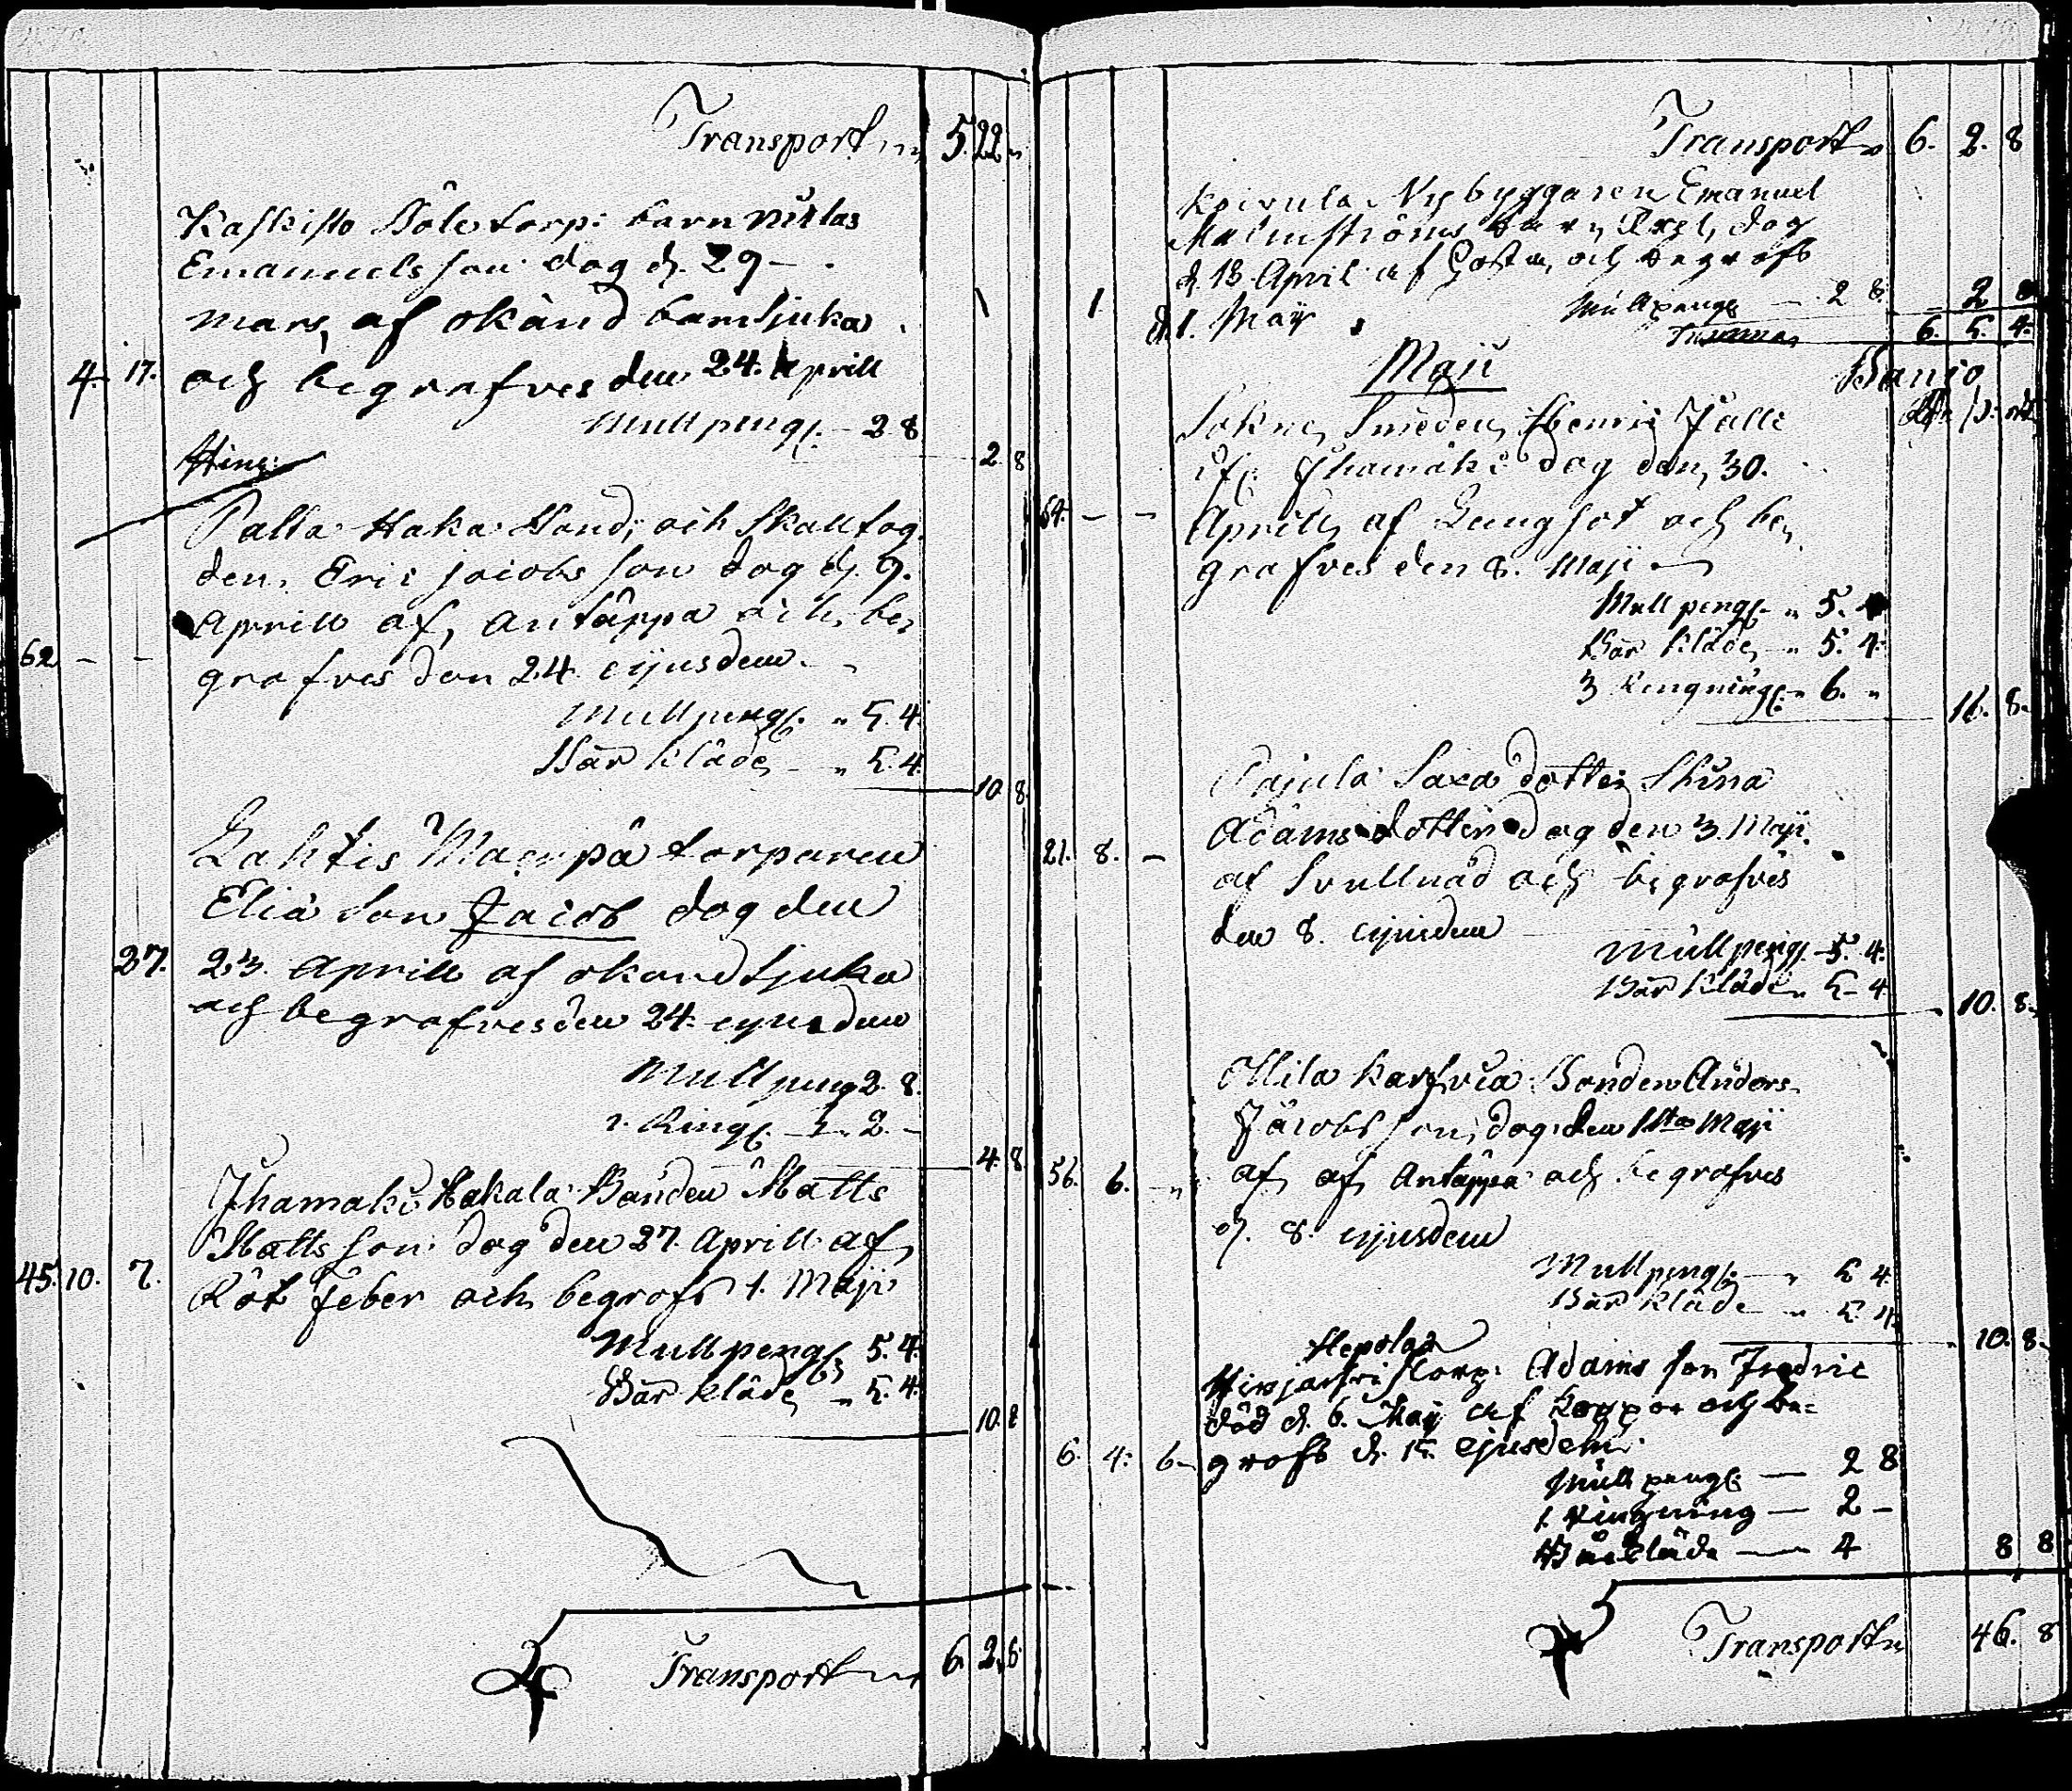 Transport 5. 22
Kaskisto Böle torp: barn Nicklas
Emanuels son dog d. 29
mars, af okänd barnsjuka 1
4. 17. och begrafves den 24. Aprill
Mullpeng: 2 8
2 8
Palla Haka Bond; och Skallfog
den, Eric Jacobs son dog d. 9.
Aprill af, Antäppa och be,
62 - - grafves den 24. ejusdem
Mullpeng: " 5. 4.
Bår kläde, " 5. 4.
10 8.
Lahtis Mäenpä torparen
Elia son Jacob dog den
27. 23. Aprill af okänd sjuka
och begrafves den 24. ejusdem
Mullpeng 2. 8.
1. Ring: 2. -
4. 8.
Jhamäki Hakala Bonden Matts
Matts son dog den 27. Aprill af,
45. 10. 7. Röt feber och begrafs 1. Maji
Mullpeng: 5. 4.
Bår kläde, " 5. 4.
10. 8
Transport 6. 2. 8.
Transport 6. 2. 8
Koivula Nybyggaren Emanuel
Malmströms barn Axel, dog
d. 18. April af och begrofs
1 d. 1. Maij Mullpeng: - 2 8. 2 8
Summa 6. 5. 4.
Maji Banco
Sokne, Smeden, Henric Jälli
if: Jhamäki dog den, 30.
64. - - Aprill, af Lungsot och be,
grafves den 8. Maji
Mull peng: " 5. 4
Bår kläde, " 5. 4.
3 Ringning: " 6. "
16. 8.
Pajula Saxa dotter Stina
21. 8. - Adams dotter dog den 3. Maji
af Svullnad och begrafves
den 8. ejusdem
Mullpeng: 5. 4.
Bår kläde " 5. 4
10. 8.
Ollila Bonden Anders
Jacobs son, dog den 1sta Maji
56. 6. - af, af, Antäppa och begrafves
d. 8. ejusdem
Mullpeng: " 5 4.
Bår kläde " 5. 4.
10. 8.
Hepola
Hirvjärvi torp: Adams son Fredric
död d. 6. Maij af Koppor och be=
6. 4. 6. grofs d. 15. ejusdem.
Mullpeng: - 2 8
1. Ringning - 2 -
Bårkläde - 4 8 8
Transport 46. 8